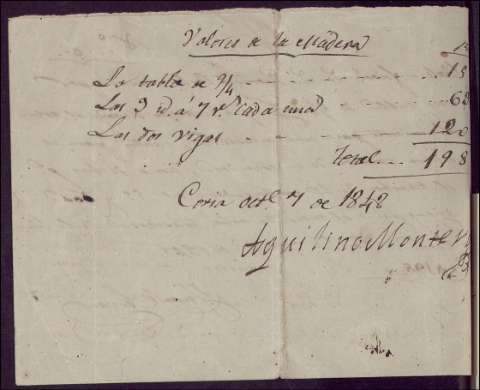 Valores de la Madera
La tabla de 9/4 15
Las 9 id. á 7 rs cada una 63
Las dos vigas 120
Total 198
Coria octe 7 de 1842
Aquilino Monter